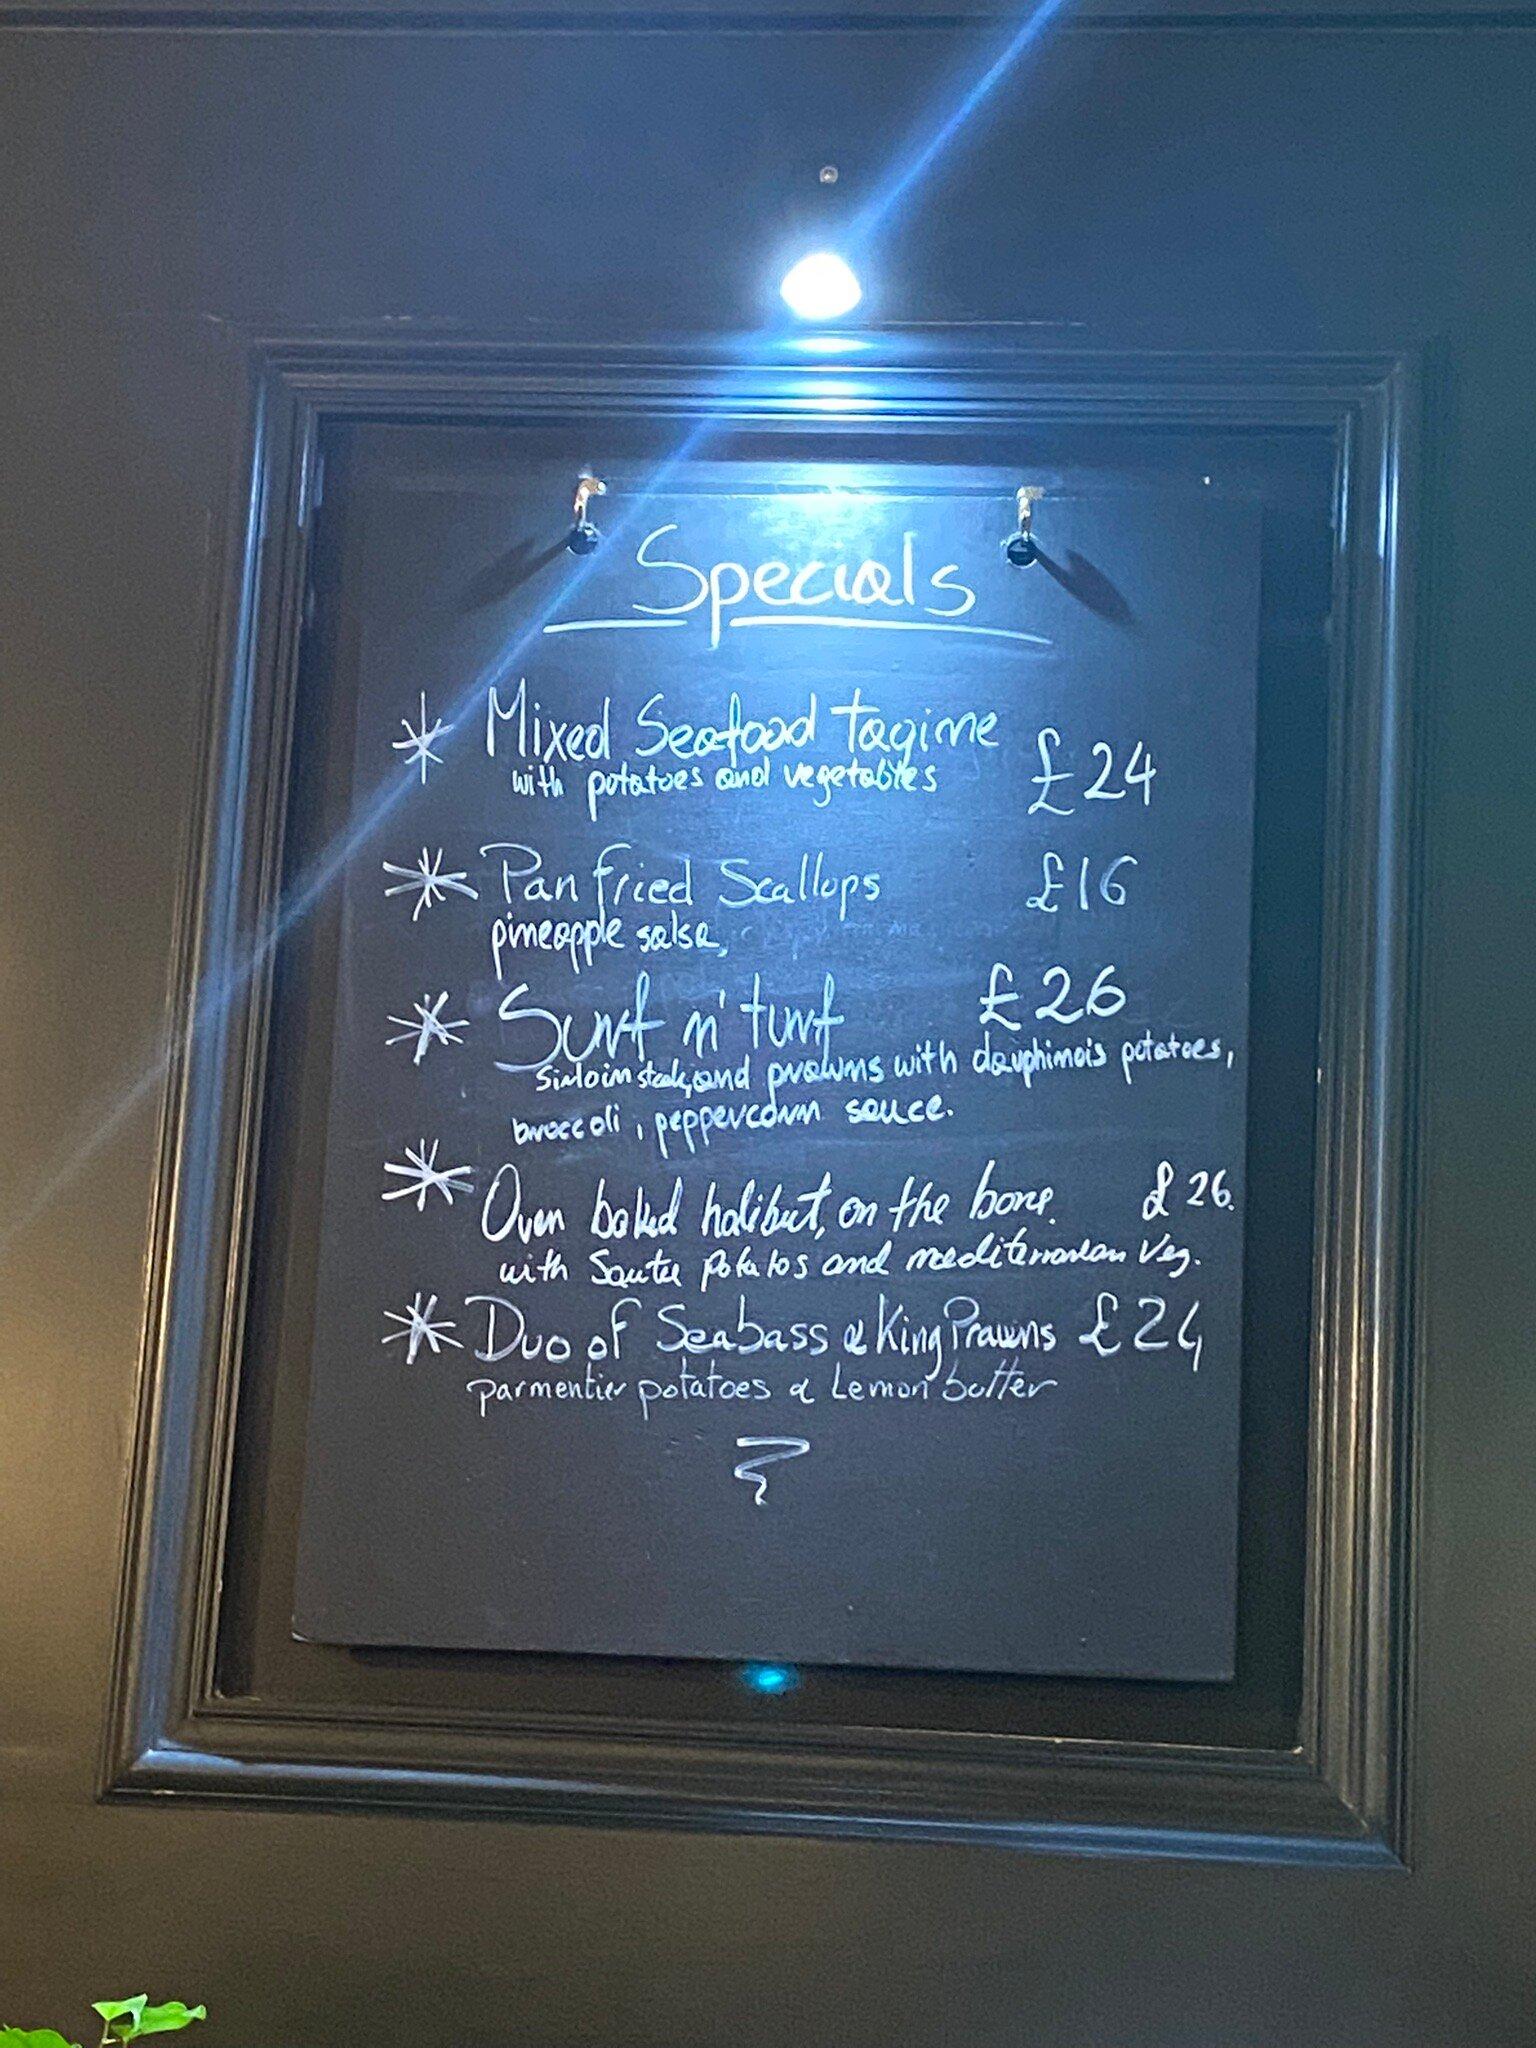 Specials
Mixed Seafood tagine £24
with potatoes and vegetables
Pan fried Scallops £16
pineapple salsa,
Surf n' turf £26
Sirloin steak, and prawns with dauphinois potatoes,
broccoli, peppercorn sauce.
Oven baked halibut, on the bone. £26.
with Sautee potatos and mediterranean Veg.
Duo of Seabass & King Prawns £24
parmentier potatoes & Lemon butter